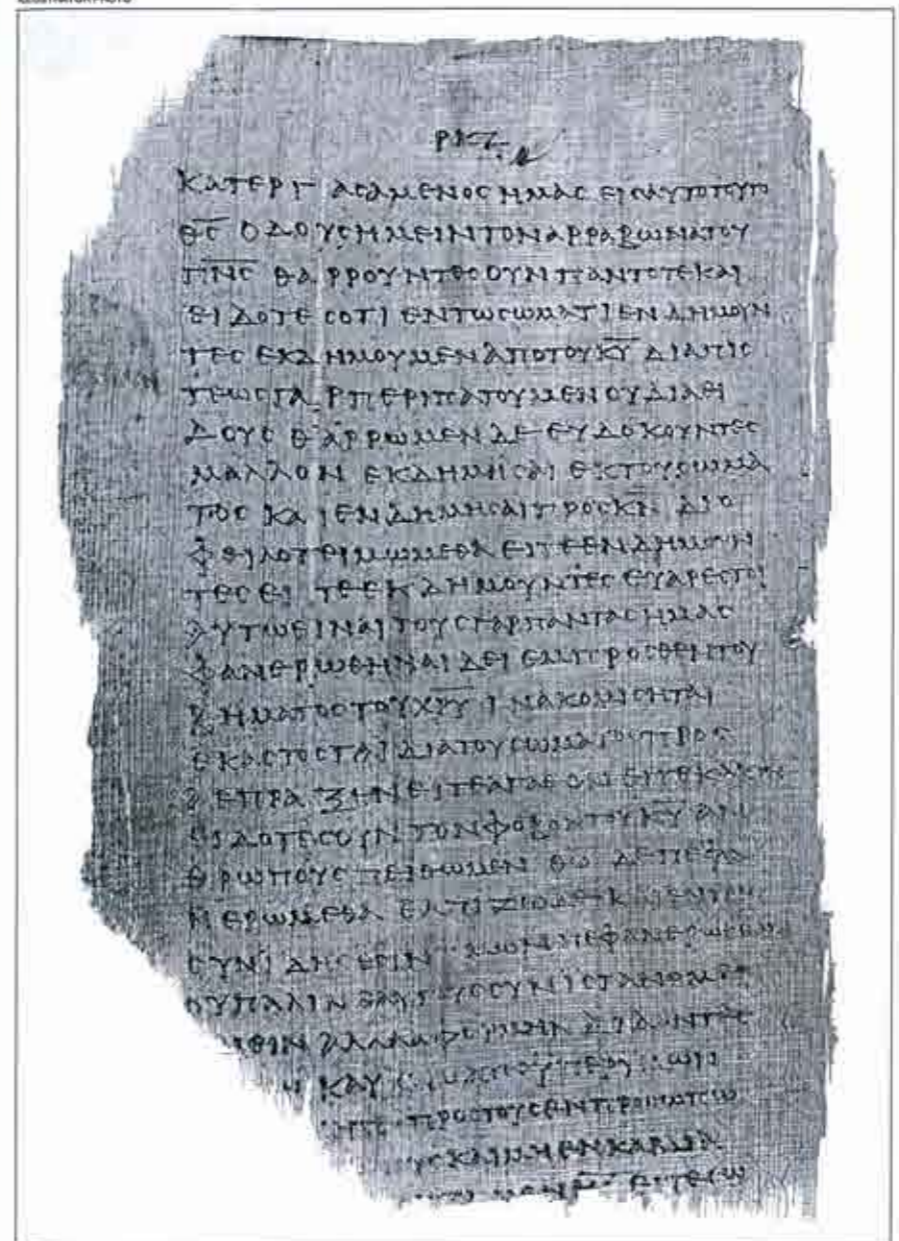 ΚΑΤΕΡΓΑϹΑΜΕΝΟϹ ΗΜΑϹ ΕΙϹ ΑΥΤΟ ΤΟΥΤΟ
Θ̅Ϲ̅ Ο ΔΟΥϹ ΗΜΕΙΝ ΤΟΝ ΑΡΡΑΒΩΝΑ ΤΟΥ
Π̅Ν̅Ϲ̅ ΘΑΡΡΟΥΝΤΕϹ ΟΥΝ ΠΑΝΤΟΤΕ ΚΑΙ
ΕΙΔΟΤΕϹ ΟΤΙ ΕΝ ΤΩ ϹΩΜΑΤΙ ΕΝΔΗΜΟΥΝ
ΤΕϹ ΕΚΔΗΜΟΥΜΕΝ ΑΠΟ ΤΟΥ Κ̅Υ̅ ΔΙΑ ΠΙϹ
ΤΕΩϹ ΓΑΡ ΠΕΡΙΠΑΤΟΥΜΕΝ ΟΥ ΔΙΑ ΕΙ
ΔΟΥϹ ΘΑΡΡΩΜΕΝ ΔΕ ΕΥΔΟΚΟΥΝΤΕϹ
ΜΑΛΛΟΝ ΕΚΔΗΜΗϹΑΙ ΕΚ ΤΟΥ ϹΩΜΑ
ΤΟϹ ΚΑΙ ΕΝΔΗΜΗϹΑΙ ΠΡΟϹ Κ̅Ν̅ ΔΙΟ
ΦΙΛΟΤΕΙΜΩΜΕΘΑ ΕΙΤΕ ΕΝΔΗΜΟΥΝ
ΤΕϹ ΕΙΤΕ ΕΚΔΗΜΟΥΝΤΕϹ ΕΥΑΡΕϹΤΟΙ
ΑΥΤΩ ΕΙΝΑΙ ΤΟΥϹ ΓΑΡ ΠΑΝΤΑϹ ΗΜΑϹ
ΦΑΝΕΡΩΘΗΝΑΙ ΔΕΙ ΕΜΠΡΟϹΘΕΝ ΤΟΥ
ΒΗΜΑΤΟϹ ΤΟΥ Χ̅Ρ̅Υ̅ ΙΝΑ ΚΟΜΙϹΗΤΑΙ
ΕΚΑϹΤΟϹ ΤΑ ΙΔΙΑ ΤΟΥ ϹΩΜΑΤΟϹ ΠΡΟϹ
Α ΕΠΡΑΞΕΝ ΕΙΤΕ ΑΓΑΘΟΝ ΕΙΤΕ ΚΑΚΟΝ
ΕΙΔΟΤΕϹ ΟΥΝ ΤΟΝ ΦΟΒΟΝ ΤΟΥ Κ̅Υ̅ ΑΝ
ΘΡΩΠΟΥϹ ΠΕΙΘΩΜΕΝ Θ̅Ω̅ ΔΕ ΠΕΦΑ
ΝΕΡΩΜΕΘΑ ΕΛΠΙΖΩ ΔΕ ΚΑΙ ΕΝ ΤΑΙϹ
ϹΥΝΙΔΗϹΕϹΙΝ ΥΜΩΝ ΠΕΦΑΝΕΡΩϹΘΑΙ
ΟΥ ΠΑΛΙΝ ΕΑΥΤΟΥϹ ϹΥΝΙϹΤΑΝΟΜΕΝ
ΑΛΛΑ ΑΦΟΡΜΗΝ ΔΙΔΟΝΤΕϹ
ΚΑΥ
ΠΡΟϹ ΤΟΥϹ ΕΝ ΠΡΟϹΩΠΩ
ΚΑΙ ΜΗ ΕΝ ΚΑΡΔΙΑ